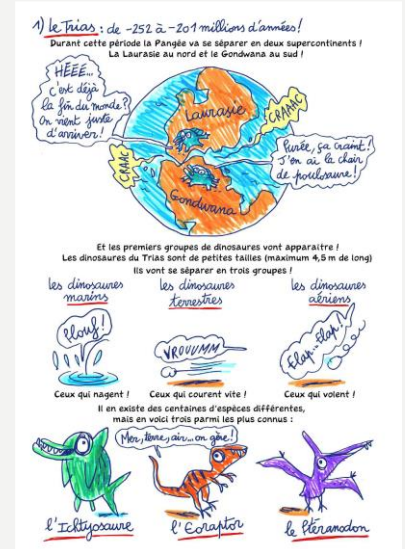 1) le Trias : de -252 à -201 millions d'années !
Durant cette période la Pangée va se séparer en deux supercontinents !
La Laurasie au nord et le Gondwana au sud !
HÉÉÉ...
C'est déjà
la fin du monde ?
On vient juste
d'arriver !
Laurasie
CRAAAC
CRAAC
Purée, ça craint !
J'en ai la chair
de poulosaure !
Gondwana
Et les premiers groupes de dinosaures vont apparaître !
Les dinosaures du Trias sont de petites tailles (maximum 4,5 m de long)
Ils vont se séparer en trois groupes !
les dinosaures
marins
les dinosaures
terrestres
les dinosaures
aériens
Plouf !
VROUUMM
Flap-Flap !
Ceux qui nagent !
Ceux qui courent vite !
Ceux qui volent !
Il en existe des centaines d'espèces différentes,
mais en voici trois parmi les plus connus :
Mer, terre, air... on gère !
l'Ichtyosaure
l'Eoraptor
le Ptéranodon